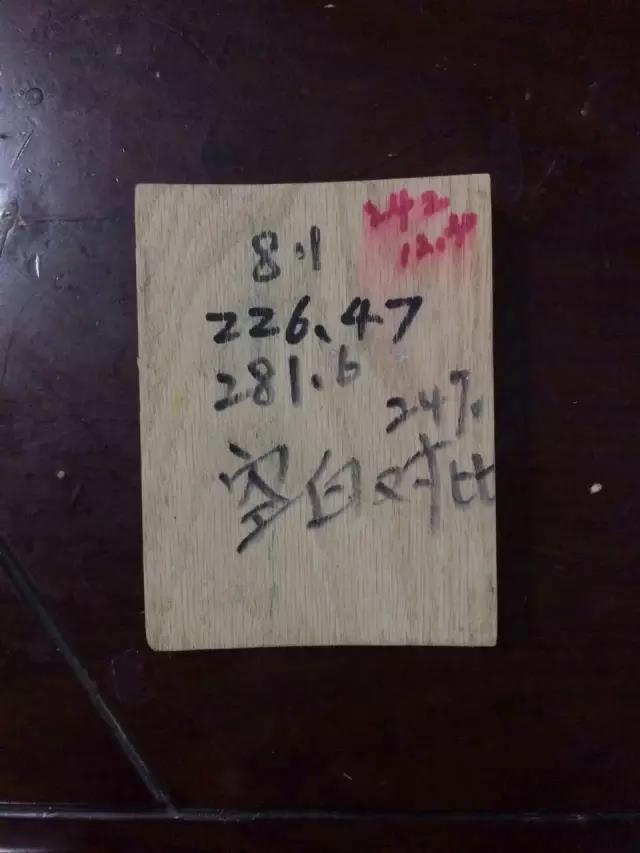 242
12.4
8.1
226.47
281.6
24%
空白对比